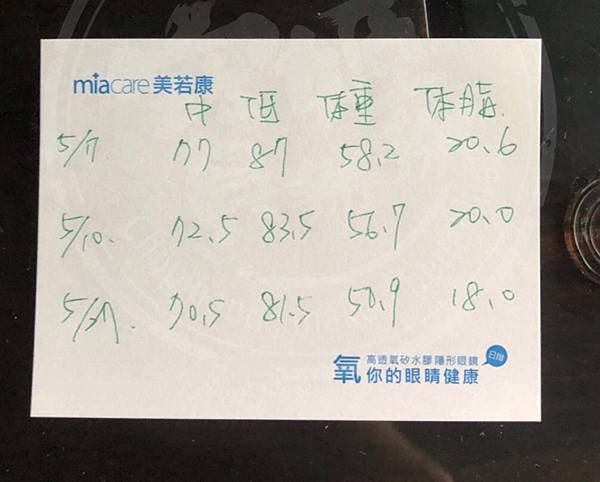 miacare 美若康
中 低 体重 体脂
5/7 77 87 58.2 20.6
5/10. 72.5 83.5 56.7 20.0
70.5 81.5 50.9 18.0
高透氧矽水膠隱形眼鏡 日拋
氧 你的眼睛健康